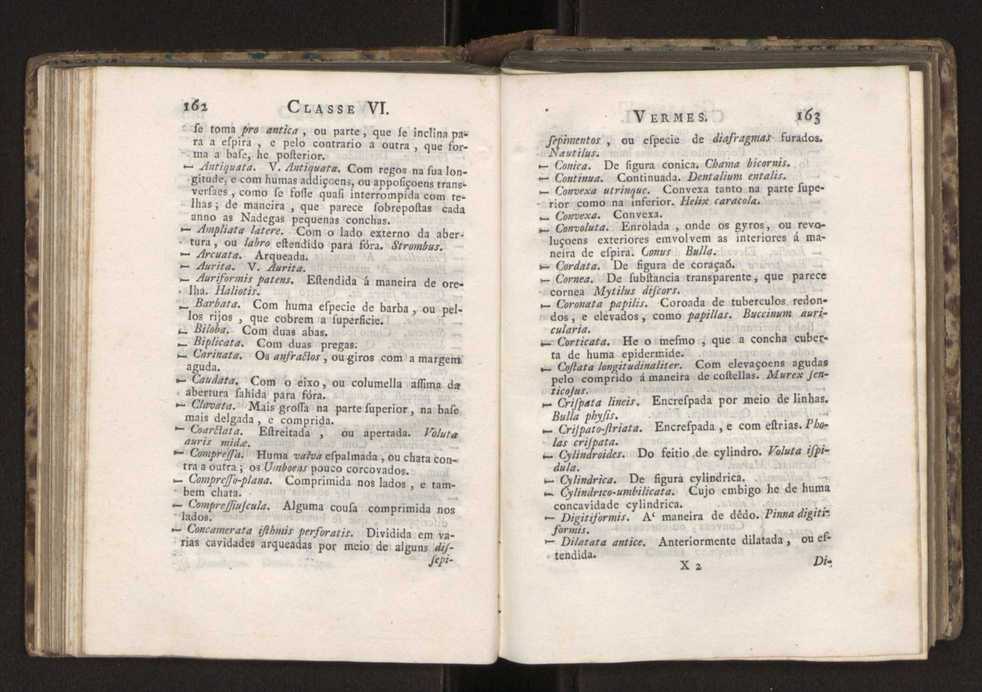 162 CLASSE VI.
ſe toma pro antica, ou parte, que ſe inclina pa-
ra a eſpira, e pelo contrario a outra, que for-
ma a baſe, he poſterior.
— Antiquata. V. Antiquata. Com regos na ſua lon-
gitude, e com humas addiçoens, ou appoſiçoens trans-
verſaes, como ſe foſſe quaſi interrompida com te-
lhas; de maneira, que parece ſobrepoſtas cada
anno as Nadegas pequenas conchas.
— Ampliata latere. Com o lado externo da aber-
tura, ou labro eſtendido para fóra. Strombus.
— Arcuata. Arqueada.
— Aurita. V. Aurita.
— Auriformis patens. Eſtendida á maneira de ore-
lha. Haliotis.
— Barbata. Com huma eſpecie de barba, ou pel-
los rijos, que cobrem a ſuperficie.
— Biloba. Com duas abas.
— Biplicata. Com duas pregas.
— Carinata. Os anfractos, ou giros com a margem
aguda.
— Caudata. Com o eixo, ou columella aſſima da
abertura ſahida para fóra.
— Clavata. Mais groſſa na parte ſuperior, na baſe
mais delgada, e comprida.
— Coarctata. Eſtreitada, ou apertada. Voluta
auris midæ.
— Compreſſa. Huma valva eſpalmada, ou chata con-
tra a outra; os Umboens pouco corcovados.
— Compreſſo-plana. Comprimida nos lados, e tam-
bem chata.
— Compreſſiuſcula. Alguma couſa comprimida nos
lados.
— Concamerata iſthmis perforatis. Dividida em va-
rias cavidades arqueadas por meio de alguns diſ-
ſepi-
VERMES. 163
ſepimentos, ou eſpecie de diafragmas furados.
Nautilus.
— Conica. De figura conica. Chama bicornis.
— Continua. Continuada. Dentalium entalis.
— Convexa utrinque. Convexa tanto na parte ſupe-
rior como na inferior. Helix caracola.
— Convexa. Convexa.
— Convoluta. Enrolada, onde os gyros, ou revo-
luçoens exteriores emvolvem as interiores á ma-
neira de eſpira. Conus Bulla.
— Cordata. De figura de coraçaõ.
— Cornea. De ſubſtancia transparente, que parece
cornea Mytilus diſcors.
— Coronata papilis. Coroada de tuberculos redon-
dos, e elevados, como papillas. Buccinum auri-
cularia.
— Corticata. He o meſmo, que a concha cuber-
ta de huma epidermide.
— Coſtata longitudinaliter. Com elevaçoens agudas
pelo comprido á maneira de coſtellas. Murex ſen-
ticoſus.
— Criſpata lineis. Encreſpada por meio de linhas.
Bulla phyſis.
— Criſpato-ſtriata. Encreſpada, e com eſtrias. Pho-
las criſpata.
— Cylindroides. Do feitio de cylindro. Voluta iſpi-
dula.
— Cylindrica. De figura cylindrica.
— Cylindrico-umbilicata. Cujo embigo he de huma
concavidade cylindrica.
— Digitiformis. A' maneira de dêdo. Pinna digiti-
formis.
— Dilatata antice. Anteriormente dilatada, ou eſ-
tendida.
X 2 Di-